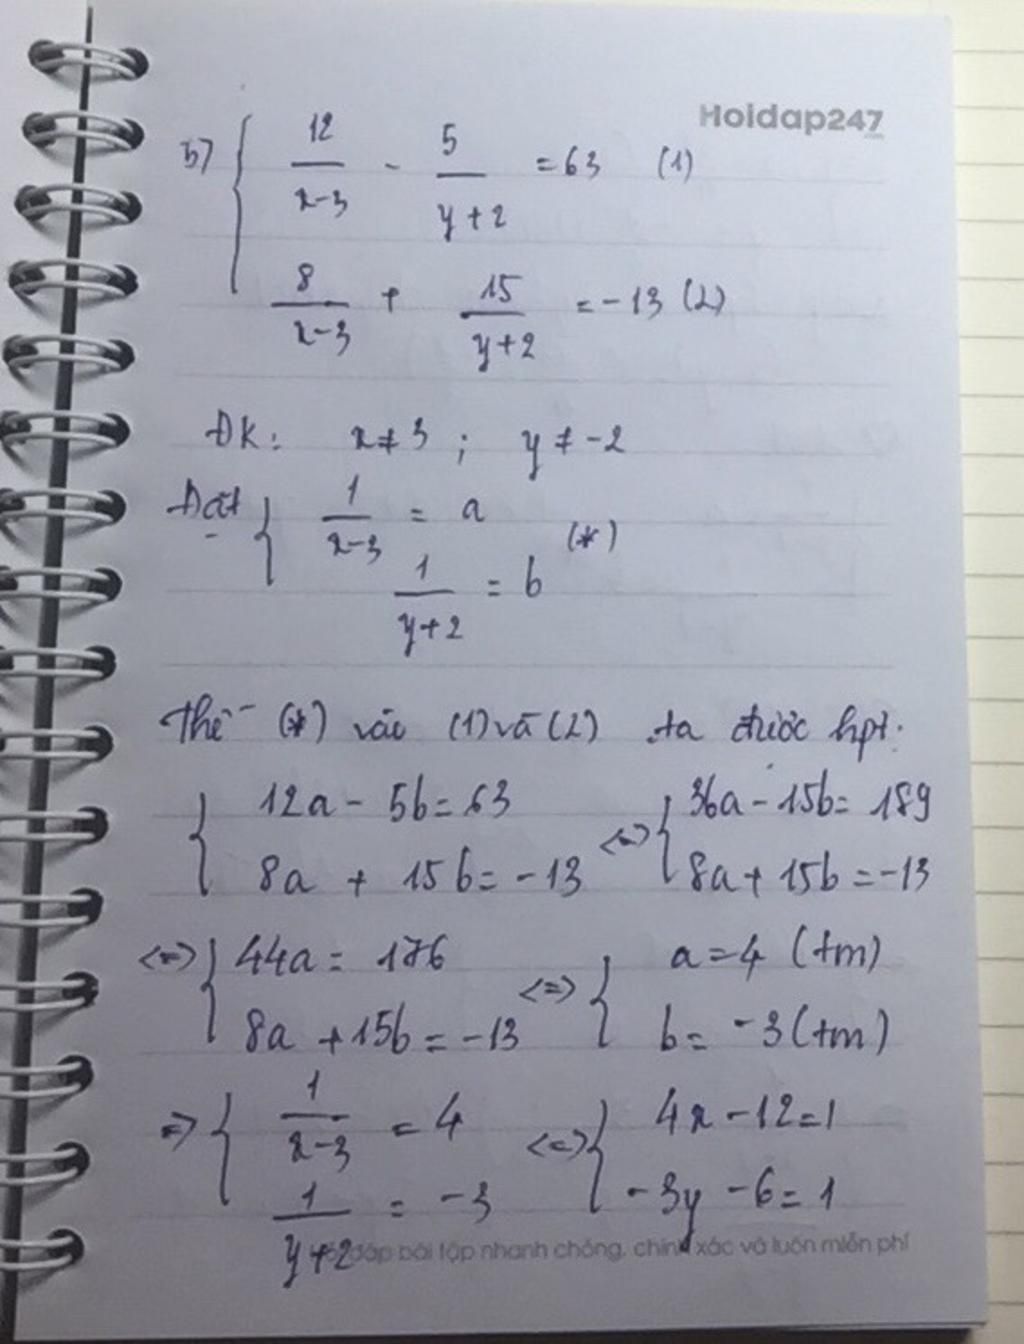 Hoidap247
b) { 12/(x-3) - 5/(y+2) = 63 (1)
8/(x-3) + 15/(y+2) = -13 (2)
ĐK: x ≠ 3 ; y ≠ -2
Đặt { 1/(x-3) = a (*)
1/(y+2) = b
Thế (*) vào (1) và (2) ta được hpt:
{ 12a - 5b = 63 <=> { 36a - 15b = 189
8a + 15b = -13 8a + 15b = -13
<=> { 44a = 176 <=> { a = 4 (tm)
8a + 15b = -13 b = -3 (tm)
=> { 1/(x-3) = 4 <=> { 4x - 12 = 1
1/(y+2) = -3 -3y - 6 = 1
đáp bài tập nhanh chóng, chính xác và luôn miễn phí